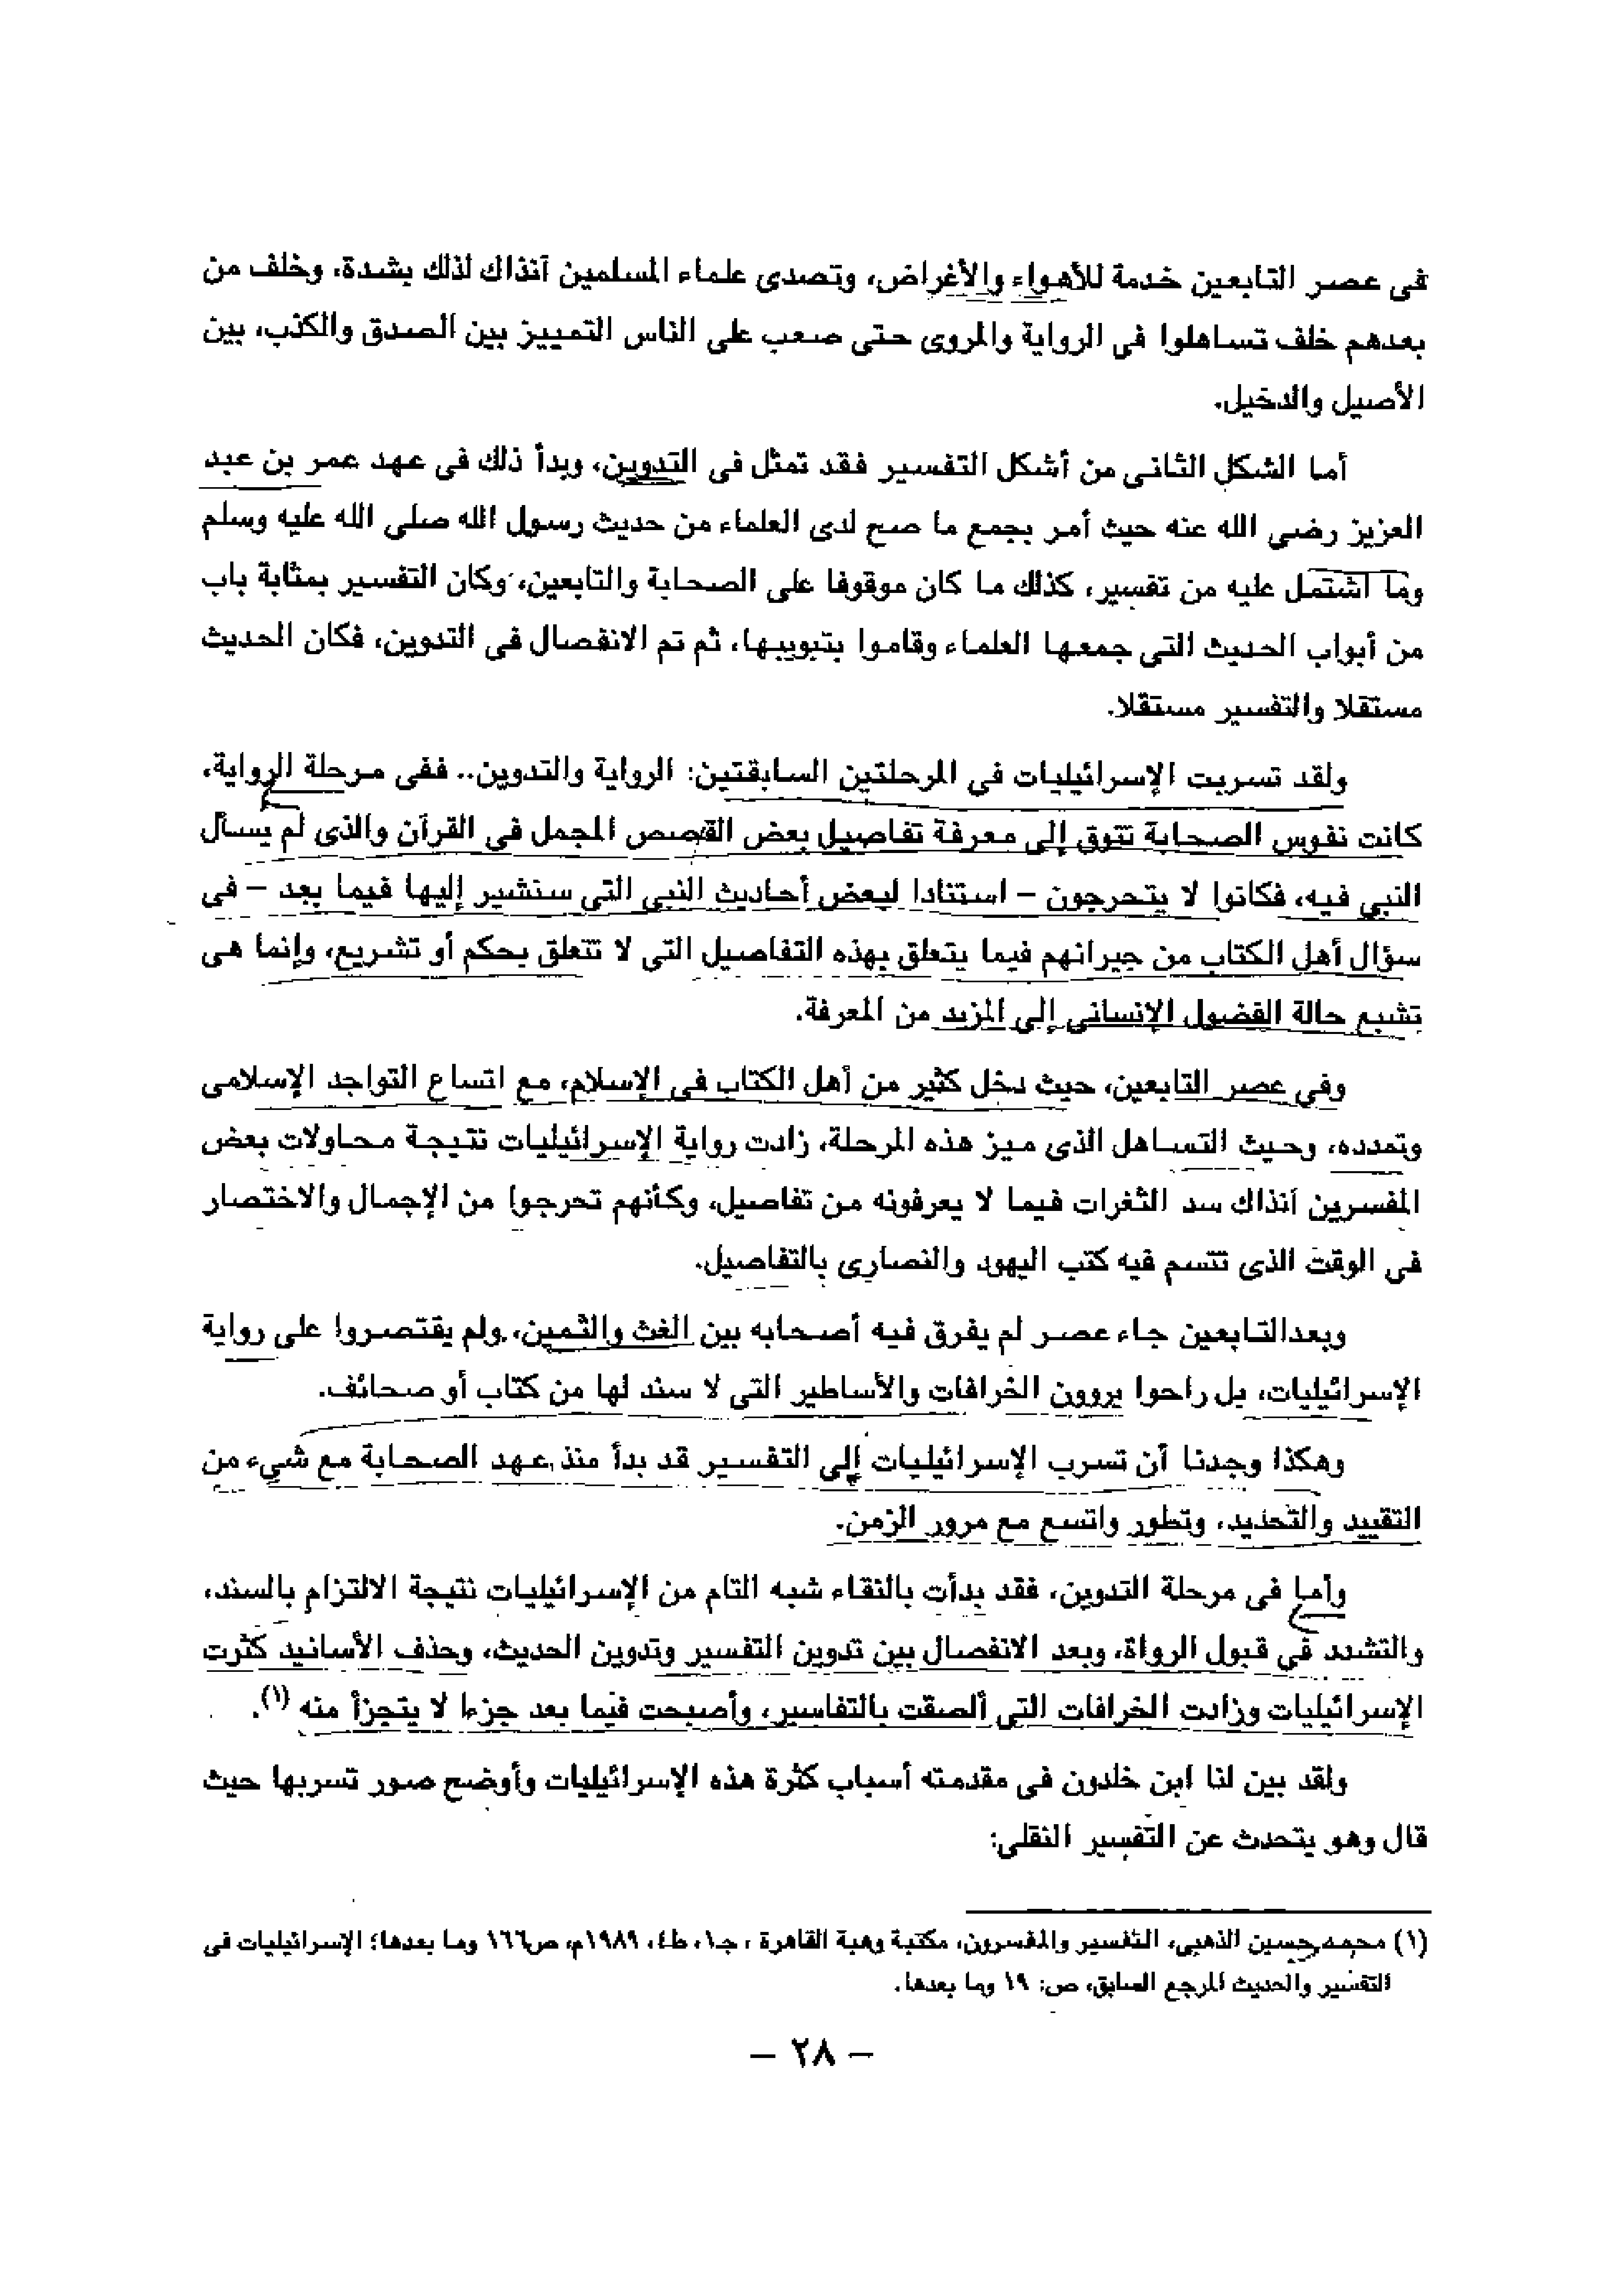 فى عصر التابعين خدمة للأهواء والأغراض، وتصدى علماء المسلمين آنذاك لذلك بشدة، وخلف من
بعدهم خلف تساهلوا فى الرواية والمروى حتى صعب على الناس التمييز بين الصدق والكذب، بين
الأصيل والدخيل.
أما الشكل الثانى من أشكل التفسير فقد تمثل فى التدوين، وبدأ ذلك فى عهد عمر بن عبد
العزيز رضى الله عنه حيث أمر بجمع ما صح لدى العلماء من حديث رسول الله صلى الله عليه وسلم
وما اشتمل عليه من تفسير، كذلك ما كان موقوفا على الصحابة والتابعين، وكان التفسير بمثابة باب
من أبواب الحديث التى جمعها العلماء وقاموا بتبويبها، ثم تم الانفصال فى التدوين، فكان الحديث
مستقلا والتفسير مستقلا.
ولقد تسربت الإسرائيليات فى المرحلتين السابقتين: الرواية والتدوين.. ففى مرحلة الرواية،
كانت نفوس الصحابة تتوق إلى معرفة تفاصيل بعض القصص المجمل فى القرآن والذى لم يسأل
النبى فيه، فكانوا لا يتحرجون – استنادا لبعض أحاديث النبى التى سنشير إليها فيما بعد – فى
سؤال أهل الكتاب من جيرانهم فيما يتعلق بهذه التفاصيل التى لا تتعلق بحكم أو تشريع، وإنما هى
تشبع حالة الفضول الإنسانى إلى المزيد من المعرفة.
وفى عصر التابعين، حيث دخل كثير من أهل الكتاب فى الإسلام، مع اتساع التواجد الإسلامى
وتمدده، وحيث التساهل الذى ميز هذه المرحلة، زادت رواية الإسرائيليات نتيجة محاولات بعض
المفسرين آنذاك سد الثغرات فيما لا يعرفونه من تفاصيل، وكأنهم تحرجوا من الإجمال والاختصار
فى الوقت الذى تتسم فيه كتب اليهود والنصارى بالتفاصيل.
وبعدالتابعين جاء عصر لم يفرق فيه أصحابه بين الغث والثمين، ولم يقتصروا على رواية
الإسرائيليات، بل راحوا يروون الخرافات والأساطير التى لا سند لها من كتاب أو صحائف.
وهكذا وجدنا أن تسرب الإسرائيليات إلى التفسير قد بدأ منذ عهد الصحابة مع شىء من
التقييد والتحديد، وتطور واتسع مع مرور الزمن.
وأما فى مرحلة التدوين، فقد بدأت بالنقاء شبه التام من الإسرائيليات نتيجة الالتزام بالسند،
والتشدد فى قبول الرواة، وبعد الانفصال بين تدوين التفسير وتدوين الحديث، وحذف الأسانيد كثرت
الإسرائيليات وزادت الخرافات التى ألصقت بالتفاسير، وأصبحت فيما بعد جزءا لا يتجزأ منه (١).
ولقد بين لنا ابن خلدون فى مقدمته أسباب كثرة هذه الإسرائيليات وأوضح صور تسربها حيث
قال وهو يتحدث عن التفسير النقلى:
(١) محمد حسين الذهبى، التفسير والمفسرون، مكتبة وهبة القاهرة ، جـ١، ط٤، ١٩٨٩م، ص١٦٦ وما بعدها؛ الإسرائيليات فى
التفسير والحديث المرجع السابق، ص: ١٩ وما بعدها.
– ٢٨ –